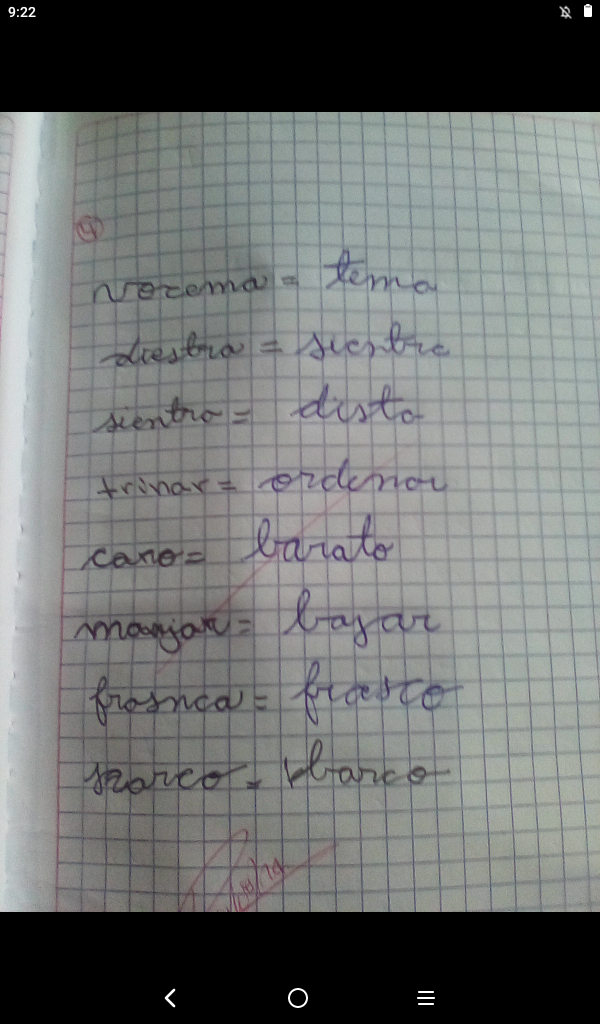 9:22
4
vozema = tema
diestra = sientra
sientra = dista
trinar = ordenar
caro = barato
manjar = bajar
frasnca = frasco
szarco = barco